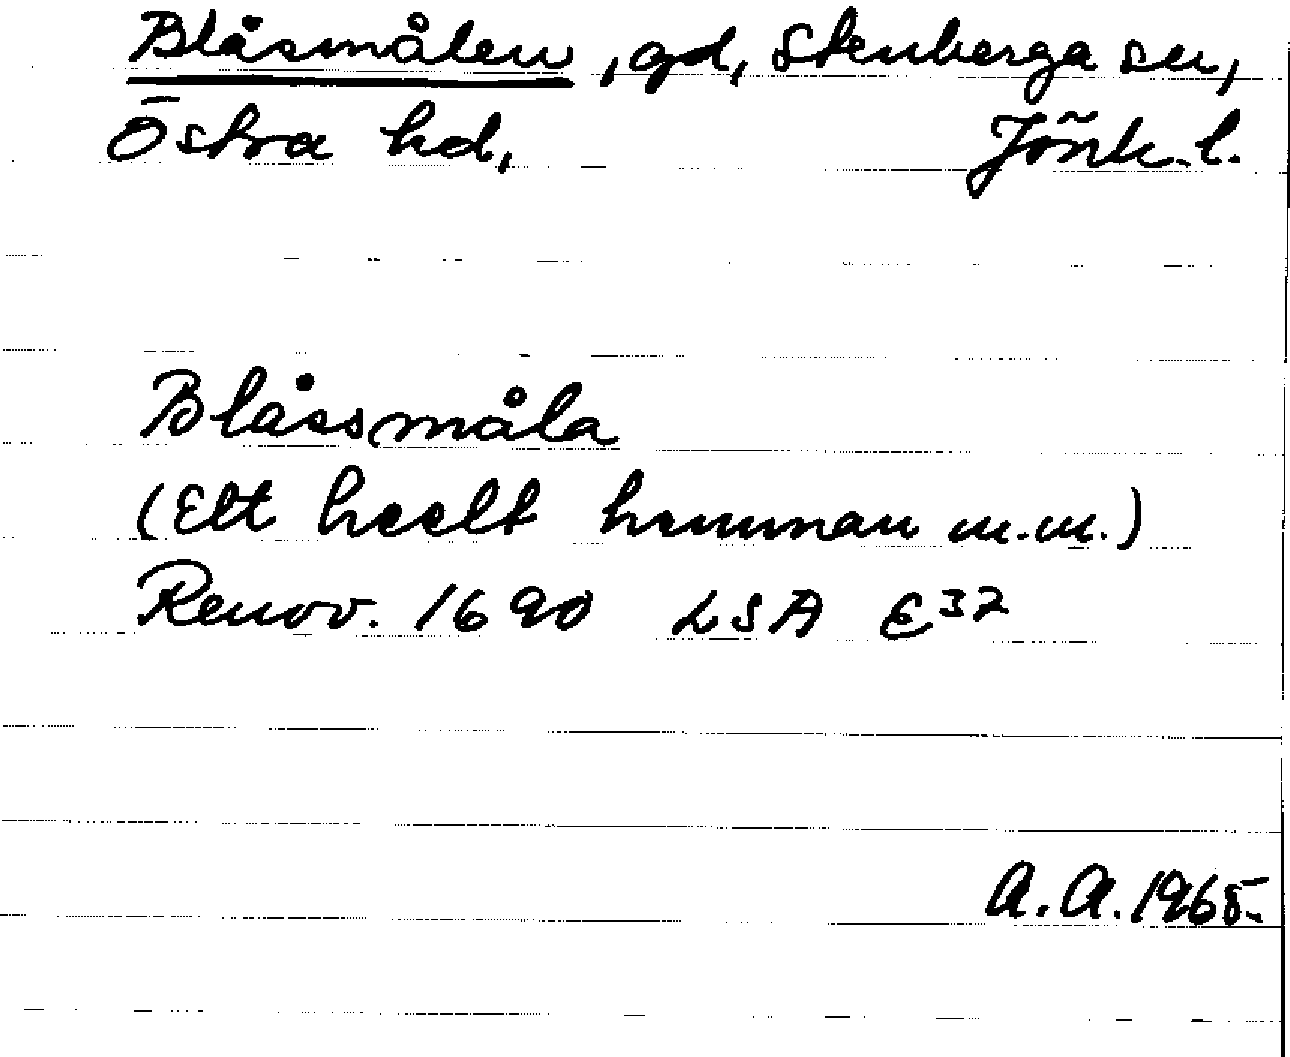 Blåsmålen, gd, Stenberga sn,
Östra hd, Jönk. l.
Blåssmåla
(Ett heelt hemman m.m.)
Renov. 1690 LSA E32
A.A. 1965.